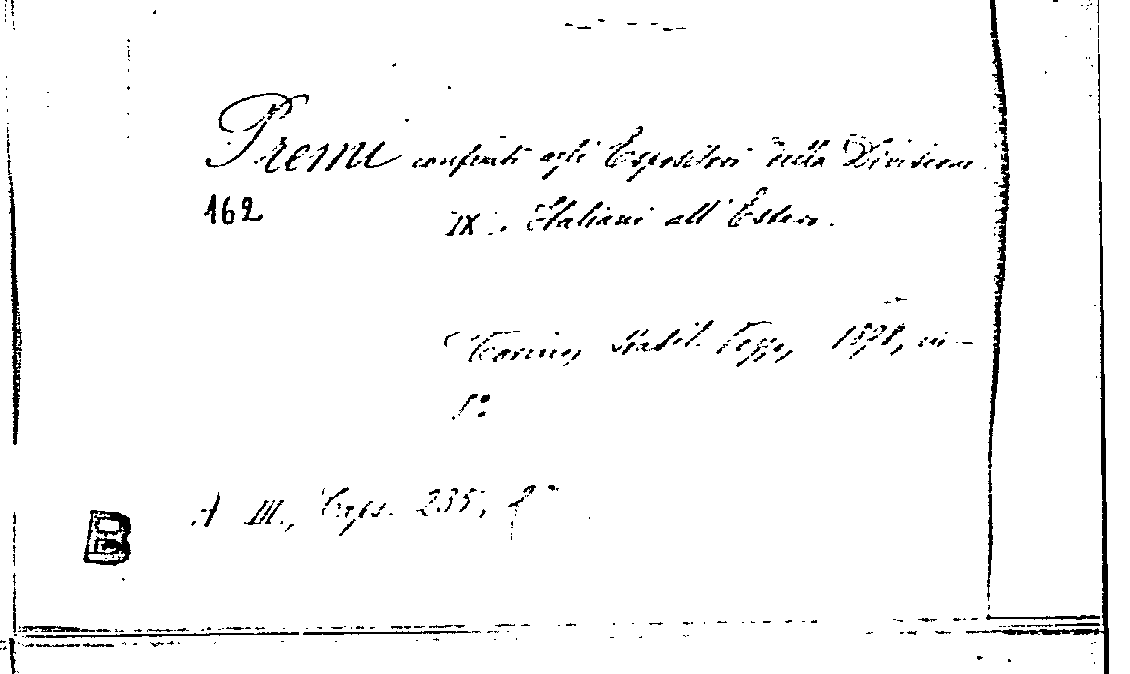 Premi conferiti agli Espositori della Divisione
162
IX: Italiani all'Estero.
Torino, Stabil. 1898, in-
8º
A III, Caps. 235,
B